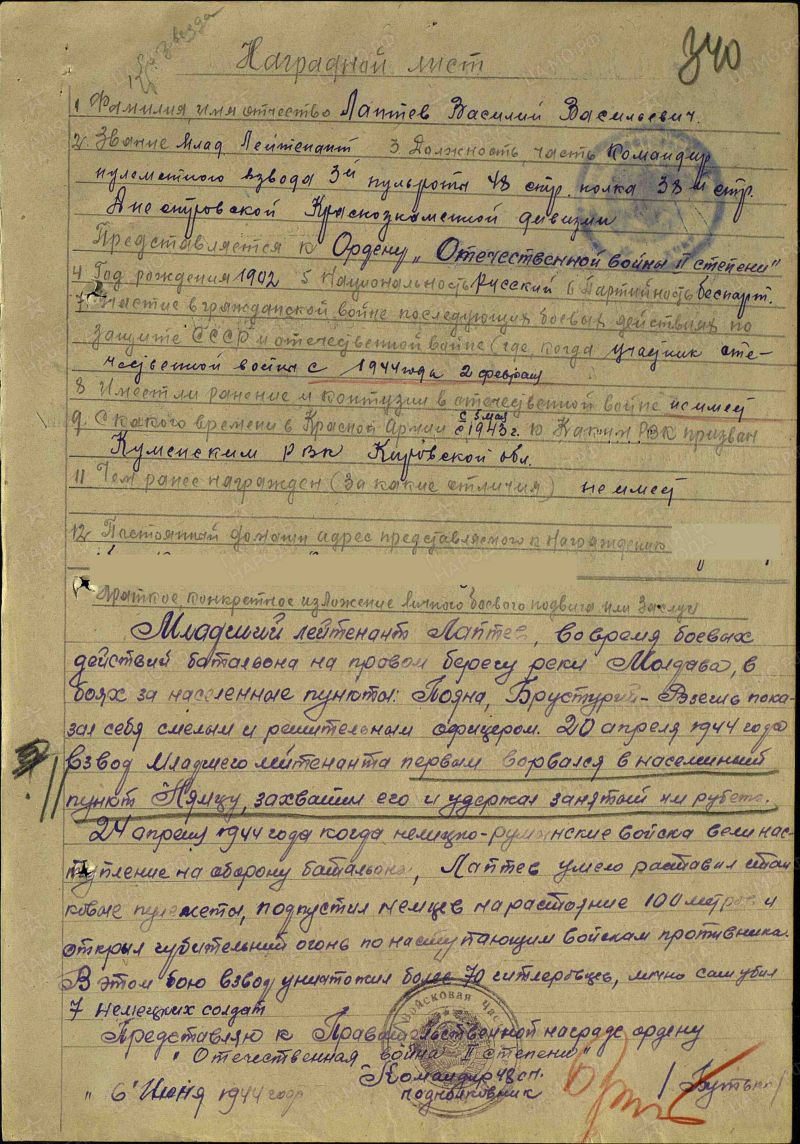 Кр. Звезда
340
Наградной лист
1 Фамилия, имя отчество Лаптев Василий Васильевич.
2 Звание Млад Лейтенант 3. Должность, часть Командир
пулеметного взвода 3й пульроты 48 стр. полка 38й стр.
Днестровской Краснознаменной дивизии
Представляется к Ордену „Отечественной войны II степени"
4 Год рождения 1902 5 Национальность Русский 6 Партийность беспарт.
7 Участие в гражданской войне последующих боевых действиях по
защите СССР и отечественной войне (где, когда участник оте-
чественной войны с 1944 года 2 февраля
8 Имеет ли ранение и контузии в отечественной войне не имеет
с 3 мая
9 С какого времени в Красной Армии с 1943 г. 10 Каким РВК призван
Куменским РВК Кировской обл.
11 Чем ранее награжден (за какие отличия) не имеет
12 Постоянный домашн адрес представляемого к награждению
Краткое конкретное изложение личного боевого подвига или заслуг
Младший лейтенант Лаптев, во время боевых
действий батальона на правом берегу реки Молдава, в
боях за населенные пункты: Пояна, Брустурий- пока-
зал себя смелым и решительным офицером. 20 апреля 1944 года
взвод Младшего лейтенанта первым ворвался в населенный
пункт Нямцу, захватил его и удержал занятый им рубеж.
24 апреля 1944 года когда немецко-румынские войска вели нас-
тупление на оборону батальона, Лаптев умело раставил стан-
ковые пулеметы, подпустил немцев на растояние 100 метров и
открыл губительный огонь по наступающим войскам противника.
В этом бою взвод уничтожил более 70 гитлеровцев, лично сам убил
7 немецких солдат
Представляю к Правительственной награде ордену
„Отечественная война II степени"
Командир 48 сп.
„ 6" Июня 1944 года подполковник / Бутько /
Войсковая часть